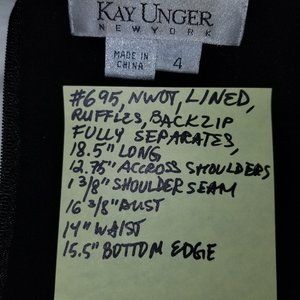 KAY UNGER
NEW YORK
MADE IN
CHINA
4
#695, NWOT, LINED,
RUFFLES, BACKZIP
FULLY SEPARATES,
18.5" LONG
12.75" ACCROSS SHOULDERS
1 3/8" SHOULDER SEAM
16 3/8" BUST
14" WAIST
15.5" BOTTOM EDGE